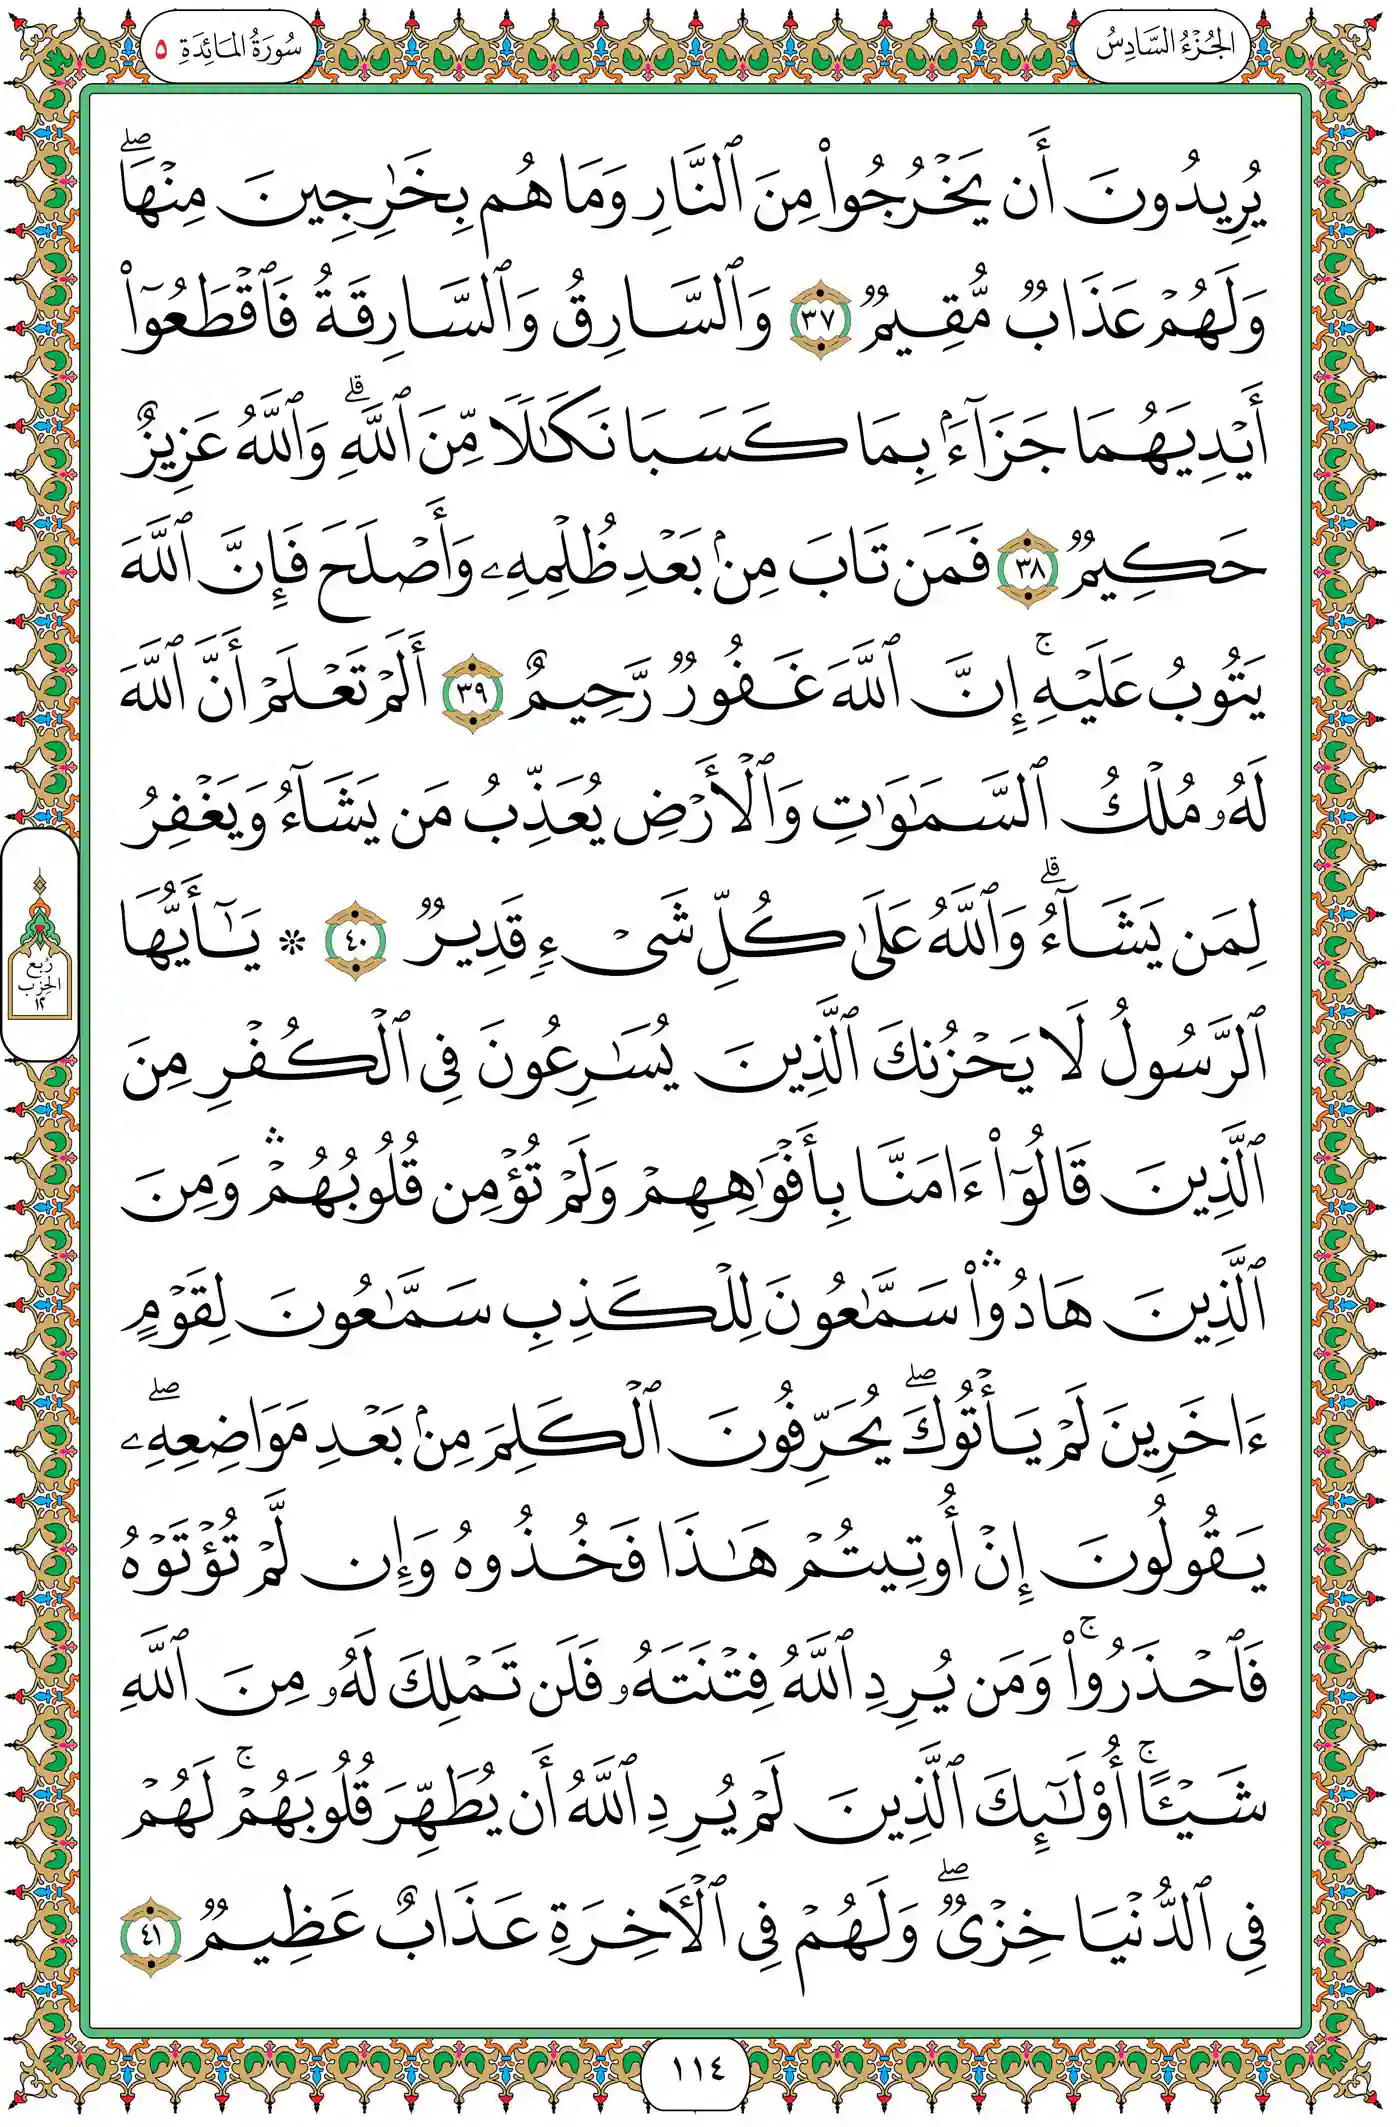 الجُزْءُ السَّادِسُ
سُورَةُ المَائِدَةِ ٥
يُرِيدُونَ أَن يَخْرُجُوا۟ مِنَ ٱلنَّارِ وَمَا هُم بِخَٰرِجِينَ مِنْهَاۖ
وَلَهُمْ عَذَابٌ مُّقِيمٌ ٣٧ وَٱلسَّارِقُ وَٱلسَّارِقَةُ فَٱقْطَعُوٓا۟
أَيْدِيَهُمَا جَزَآءَۢ بِمَا كَسَبَا نَكَٰلًا مِّنَ ٱللَّهِۗ وَٱللَّهُ عَزِيزٌ
حَكِيمٌ ٣٨ فَمَن تَابَ مِنۢ بَعْدِ ظُلْمِهِۦ وَأَصْلَحَ فَإِنَّ ٱللَّهَ
يَتُوبُ عَلَيْهِۚ إِنَّ ٱللَّهَ غَفُورٌ رَّحِيمٌ ٣٩ أَلَمْ تَعْلَمْ أَنَّ ٱللَّهَ
لَهُۥ مُلْكُ ٱلسَّمَٰوَٰتِ وَٱلْأَرْضِ يُعَذِّبُ مَن يَشَآءُ وَيَغْفِرُ
لِمَن يَشَآءُۗ وَٱللَّهُ عَلَىٰ كُلِّ شَىْءٍ قَدِيرٌ ٤٠ ۞ يَٰٓأَيُّهَا
ٱلرَّسُولُ لَا يَحْزُنكَ ٱلَّذِينَ يُسَٰرِعُونَ فِى ٱلْكُفْرِ مِنَ
ٱلَّذِينَ قَالُوٓا۟ ءَامَنَّا بِأَفْوَٰهِهِمْ وَلَمْ تُؤْمِن قُلُوبُهُمْۛ وَمِنَ
ٱلَّذِينَ هَادُوا۟ۛ سَمَّٰعُونَ لِلْكَذِبِ سَمَّٰعُونَ لِقَوْمٍ
ءَاخَرِينَ لَمْ يَأْتُوكَۖ يُحَرِّفُونَ ٱلْكَلِمَ مِنۢ بَعْدِ مَوَاضِعِهِۦۖ
يَقُولُونَ إِنْ أُوتِيتُمْ هَٰذَا فَخُذُوهُ وَإِن لَّمْ تُؤْتَوْهُ
فَٱحْذَرُوا۟ۚ وَمَن يُرِدِ ٱللَّهُ فِتْنَتَهُۥ فَلَن تَمْلِكَ لَهُۥ مِنَ ٱللَّهِ
شَيْـًٔاۚ أُو۟لَٰٓئِكَ ٱلَّذِينَ لَمْ يُرِدِ ٱللَّهُ أَن يُطَهِّرَ قُلُوبَهُمْۚ لَهُمْ
فِى ٱلدُّنْيَا خِزْىٌۖ وَلَهُمْ فِى ٱلْـَٔاخِرَةِ عَذَابٌ عَظِيمٌ ٤١
رُبع
الحِزب
١٢
١١٤